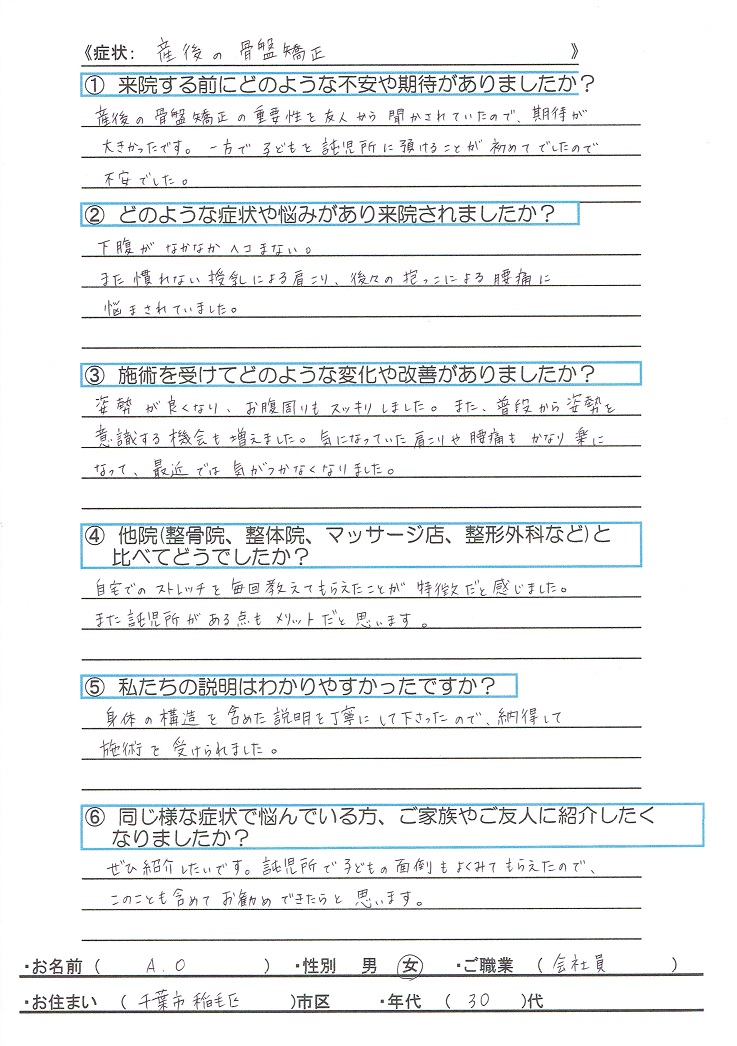 《症状: 産後の骨盤矯正 》
① 来院する前にどのような不安や期待がありましたか?
産後の骨盤矯正の重要性を友人から聞かされていたので、期待が
大きかったです。一方で子どもを託児所に預けることが初めてでしたので
不安でした。
② どのような症状や悩みがあり来院されましたか?
下腹がなかなかヘコまない。
また慣れない授乳による肩こり、後々の抱っこによる腰痛に
悩まされていました。
③ 施術を受けてどのような変化や改善がありましたか?
姿勢が良くなり、お腹周りもスッキリしました。また、普段から姿勢を
意識する機会も増えました。気になっていた肩こりや腰痛もかなり楽に
なって、最近では気がつかなくなりました。
④ 他院(整骨院、整体院、マッサージ店、整形外科など)と
比べてどうでしたか?
自宅でのストレッチを毎回教えてもらえたことが特徴だと感じました。
また託児所がある点もメリットだと思います。
⑤ 私たちの説明はわかりやすかったですか?
身体の構造を含めた説明を丁寧にして下さったので、納得して
施術を受けられました。
⑥ 同じ様な症状で悩んでいる方、ご家族やご友人に紹介したく
なりましたか?
ぜひ紹介したいです。託児所で子どもの面倒もよくみてもらえたので、
このことも含めてお勧めできたらと思います。
・お名前 ( A.O ) ・性別 男 女 ・ご職業 ( 会社員 )
・お住まい ( 千葉市稲毛区 )市区 ・年代 ( 30 )代